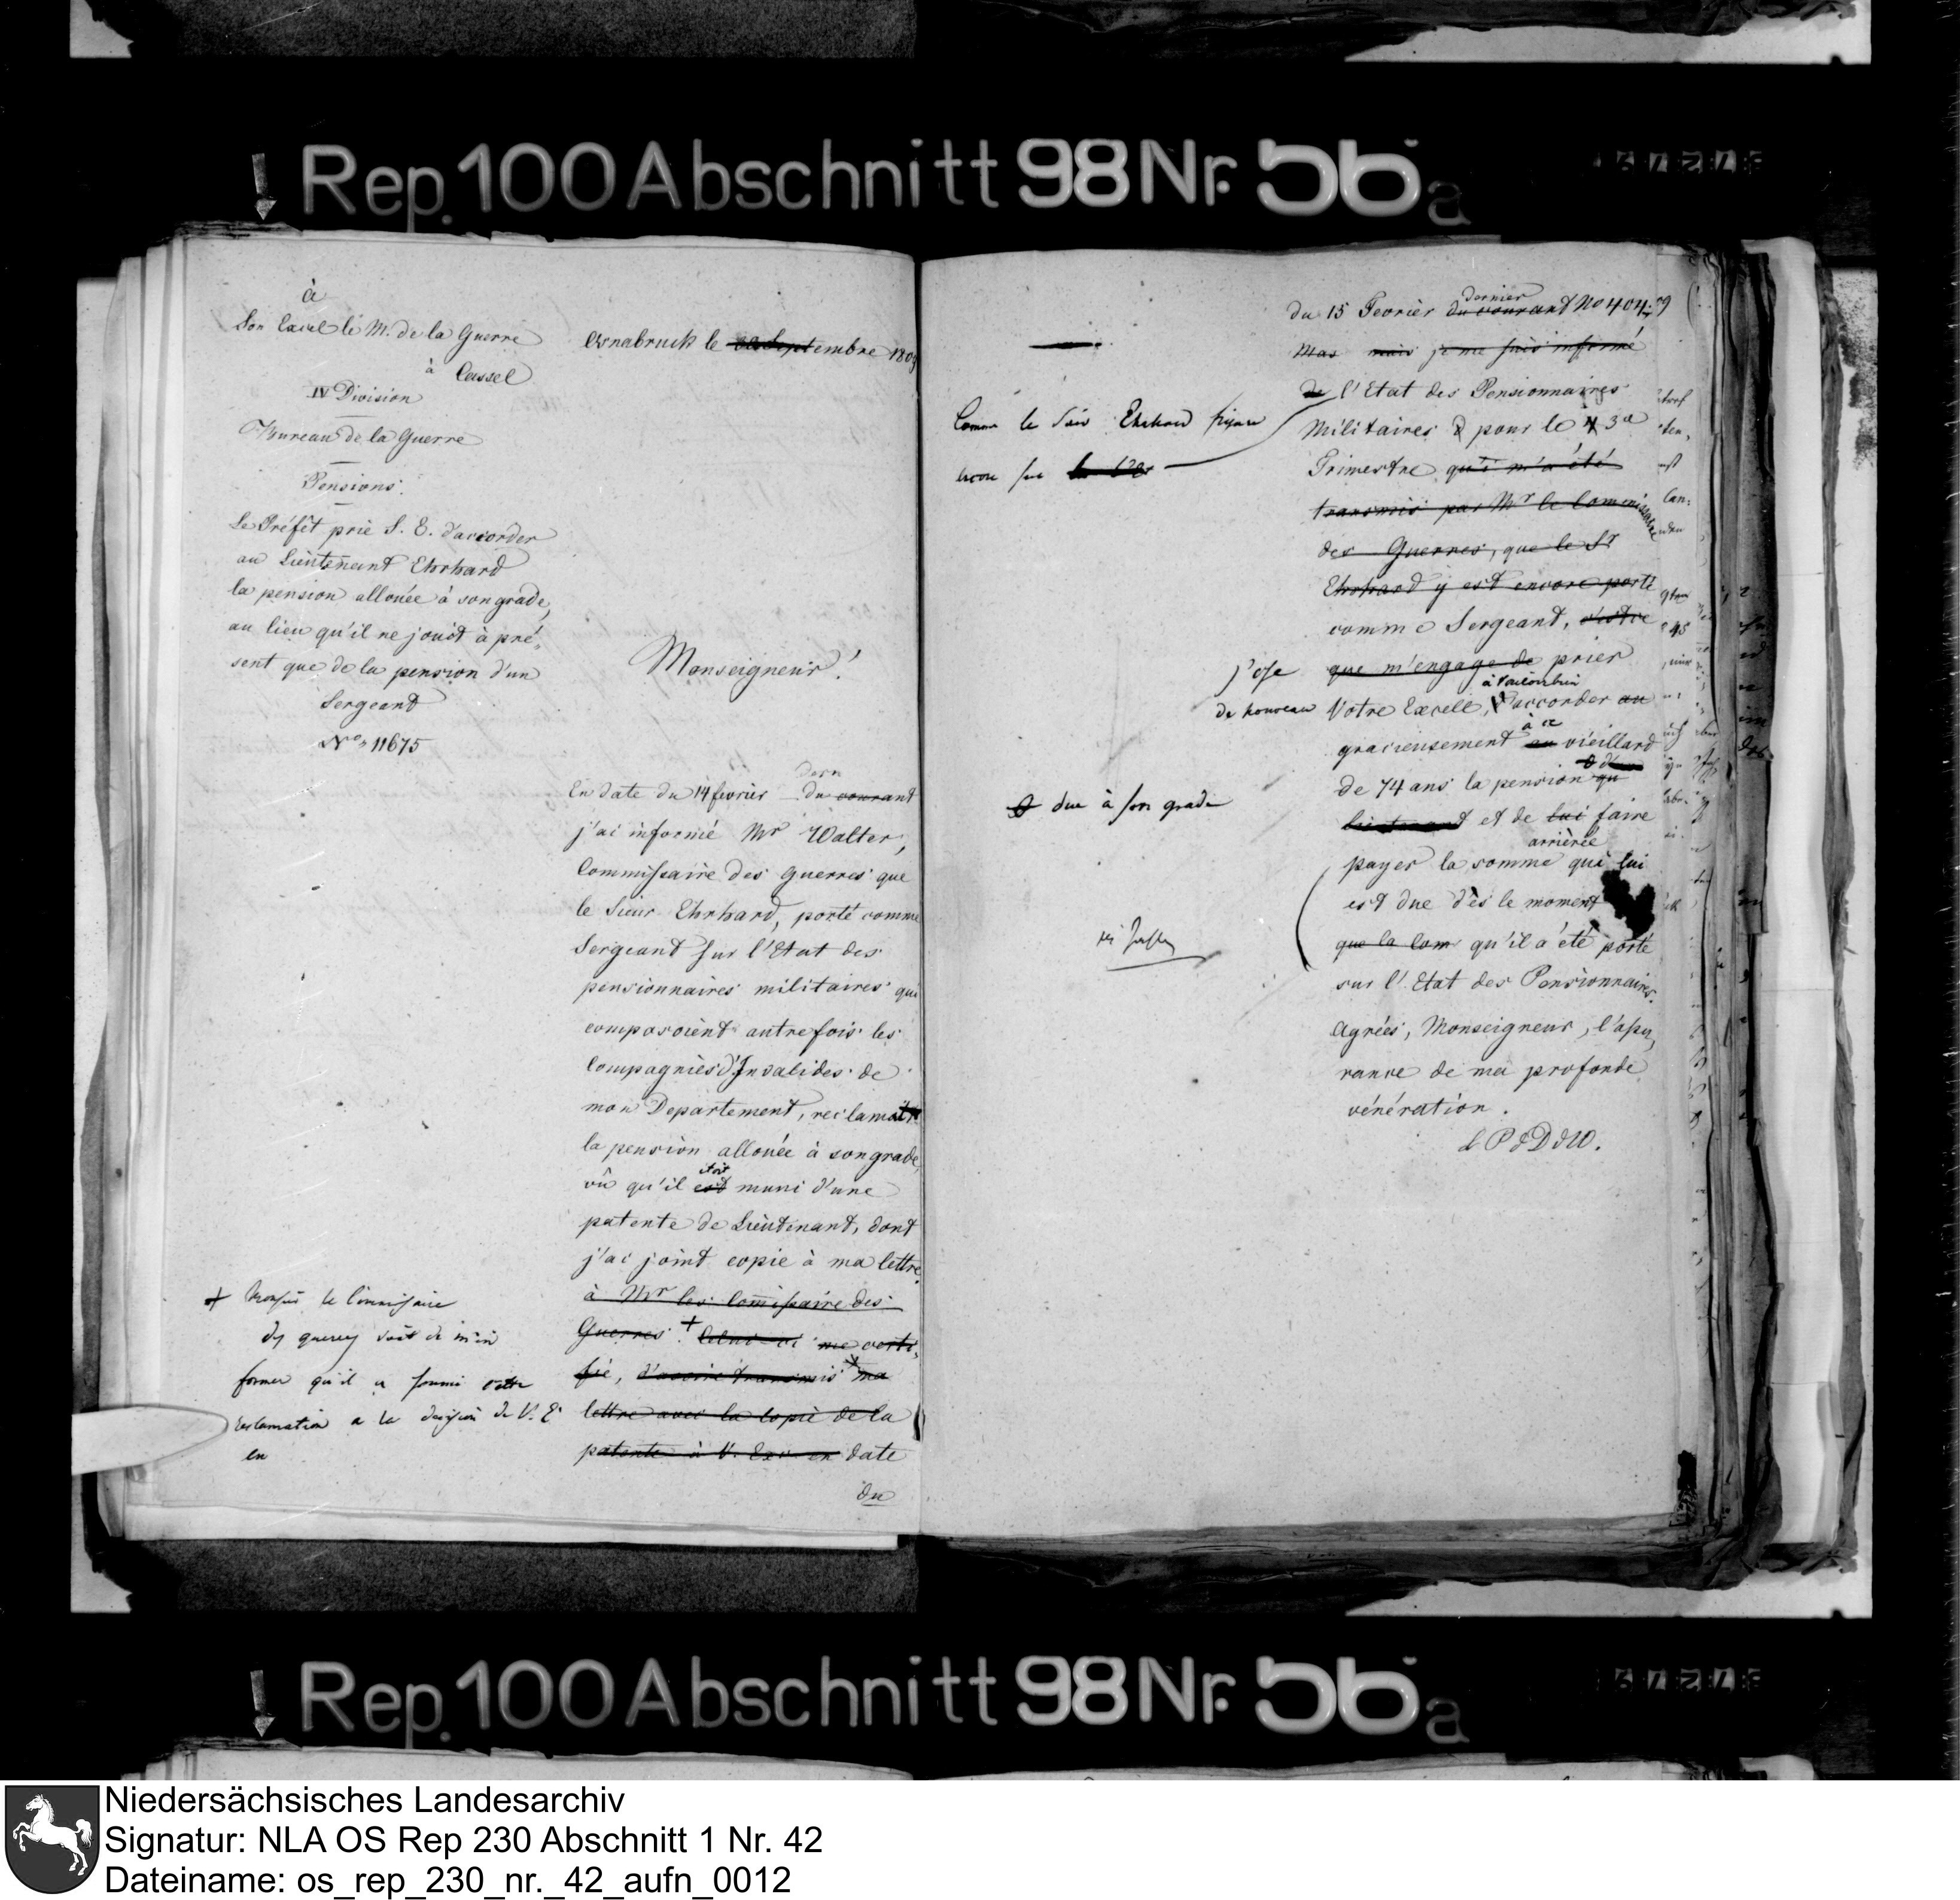 Rep. 100 Abschnitt 98 Nr. 56a
à
Son Excel le M. de la Guerre
à Cassel
IV Division
Bureau de la Guerre
Pensions.
Le Préfêt prie S. E. d'accorder
au Lieutenant Ehrhard
la pension allouée à son grade,
au lieu qu'il ne jouit à pré-
sent que de la pension d'un
Sergeant
No. 11675
Osnabruck le Septembre 1809
Monseigneur!
dern
En date du 14 fevrier du courant
j'ai informé Mr Walter,
Commissaire des Guerres que
le Sieur Ehrhard, porté comme
Sergeant sur l'Etat des
pensionnaires militaires qui
composoient autrefois les
Compagnies d'Invalides de
mon Departement, reclamoit
la pension allouée à son grade,
étoit
vû qu'il est muni d'une
patente de Lieutenant, dont
j'ai joint copie à ma lettre
à Mr les Commissaire des
Guerres. + Celui-ci me certi-
fié, d'avoir transmis ma
lettre avec la copie de la
patente à V. Exc en date
du
+ Monsieur le Commissaire
des guerres voit de m'in
former qu'il a soumi cette
reclamation a la decision de V. E.
en
dernier
du 15 Fevrier du courant No 404.
Mas mais je me suis informé
de l'Etat des Pensionnaires
Militaires pour le 4 3e
Trimestre qui m'a été
transmis par Mr le Commissaire
des Guerres, que le Sr
Ehrhard y est encore porté
comme Sergeant, c'est ce
que m'engage de prier
Votre Excell, d'accorder au
à ce
gracieusement au vieillard
de 74 ans la pension qu
Lieutenant et de lui faire
arrièrée
payer la somme qui lui
est due dès le moment
que la Com qu'il a été porté
sur l'Etat des Pensionnaires.
Agréés, Monseigneur, l'assu-
rance de ma profonde
vénération.
L P d D d W.
Comme le Sieur Ehrhard figure
encore sur
j'ose
de nouveau
due à son grade
Rep. 100 Abschnitt 98 Nr. 56a
Niedersächsisches Landesarchiv
Signatur: NLA OS Rep 230 Abschnitt 1 Nr. 42
Dateiname: os_rep_230_nr._42_aufn_0012